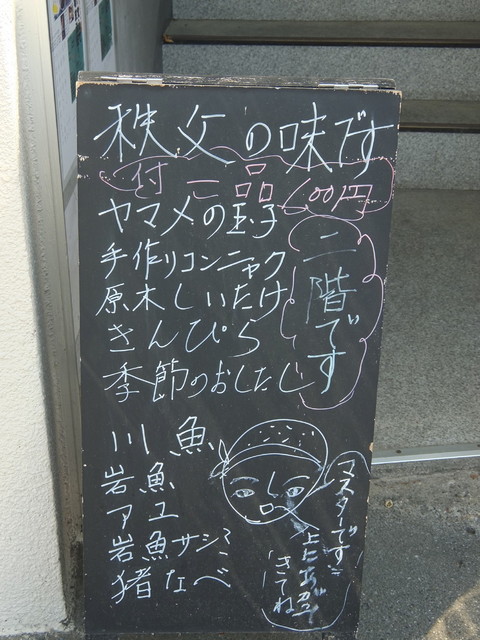 秩父の味です
付一品
100円
ヤマメの玉子
手作リコンニャク
原木しいたけ
きんぴら
季節のおしたし
二階です
川魚
岩魚
アユ
岩魚サシミ
猪なべ
マスターです
上に
きてね